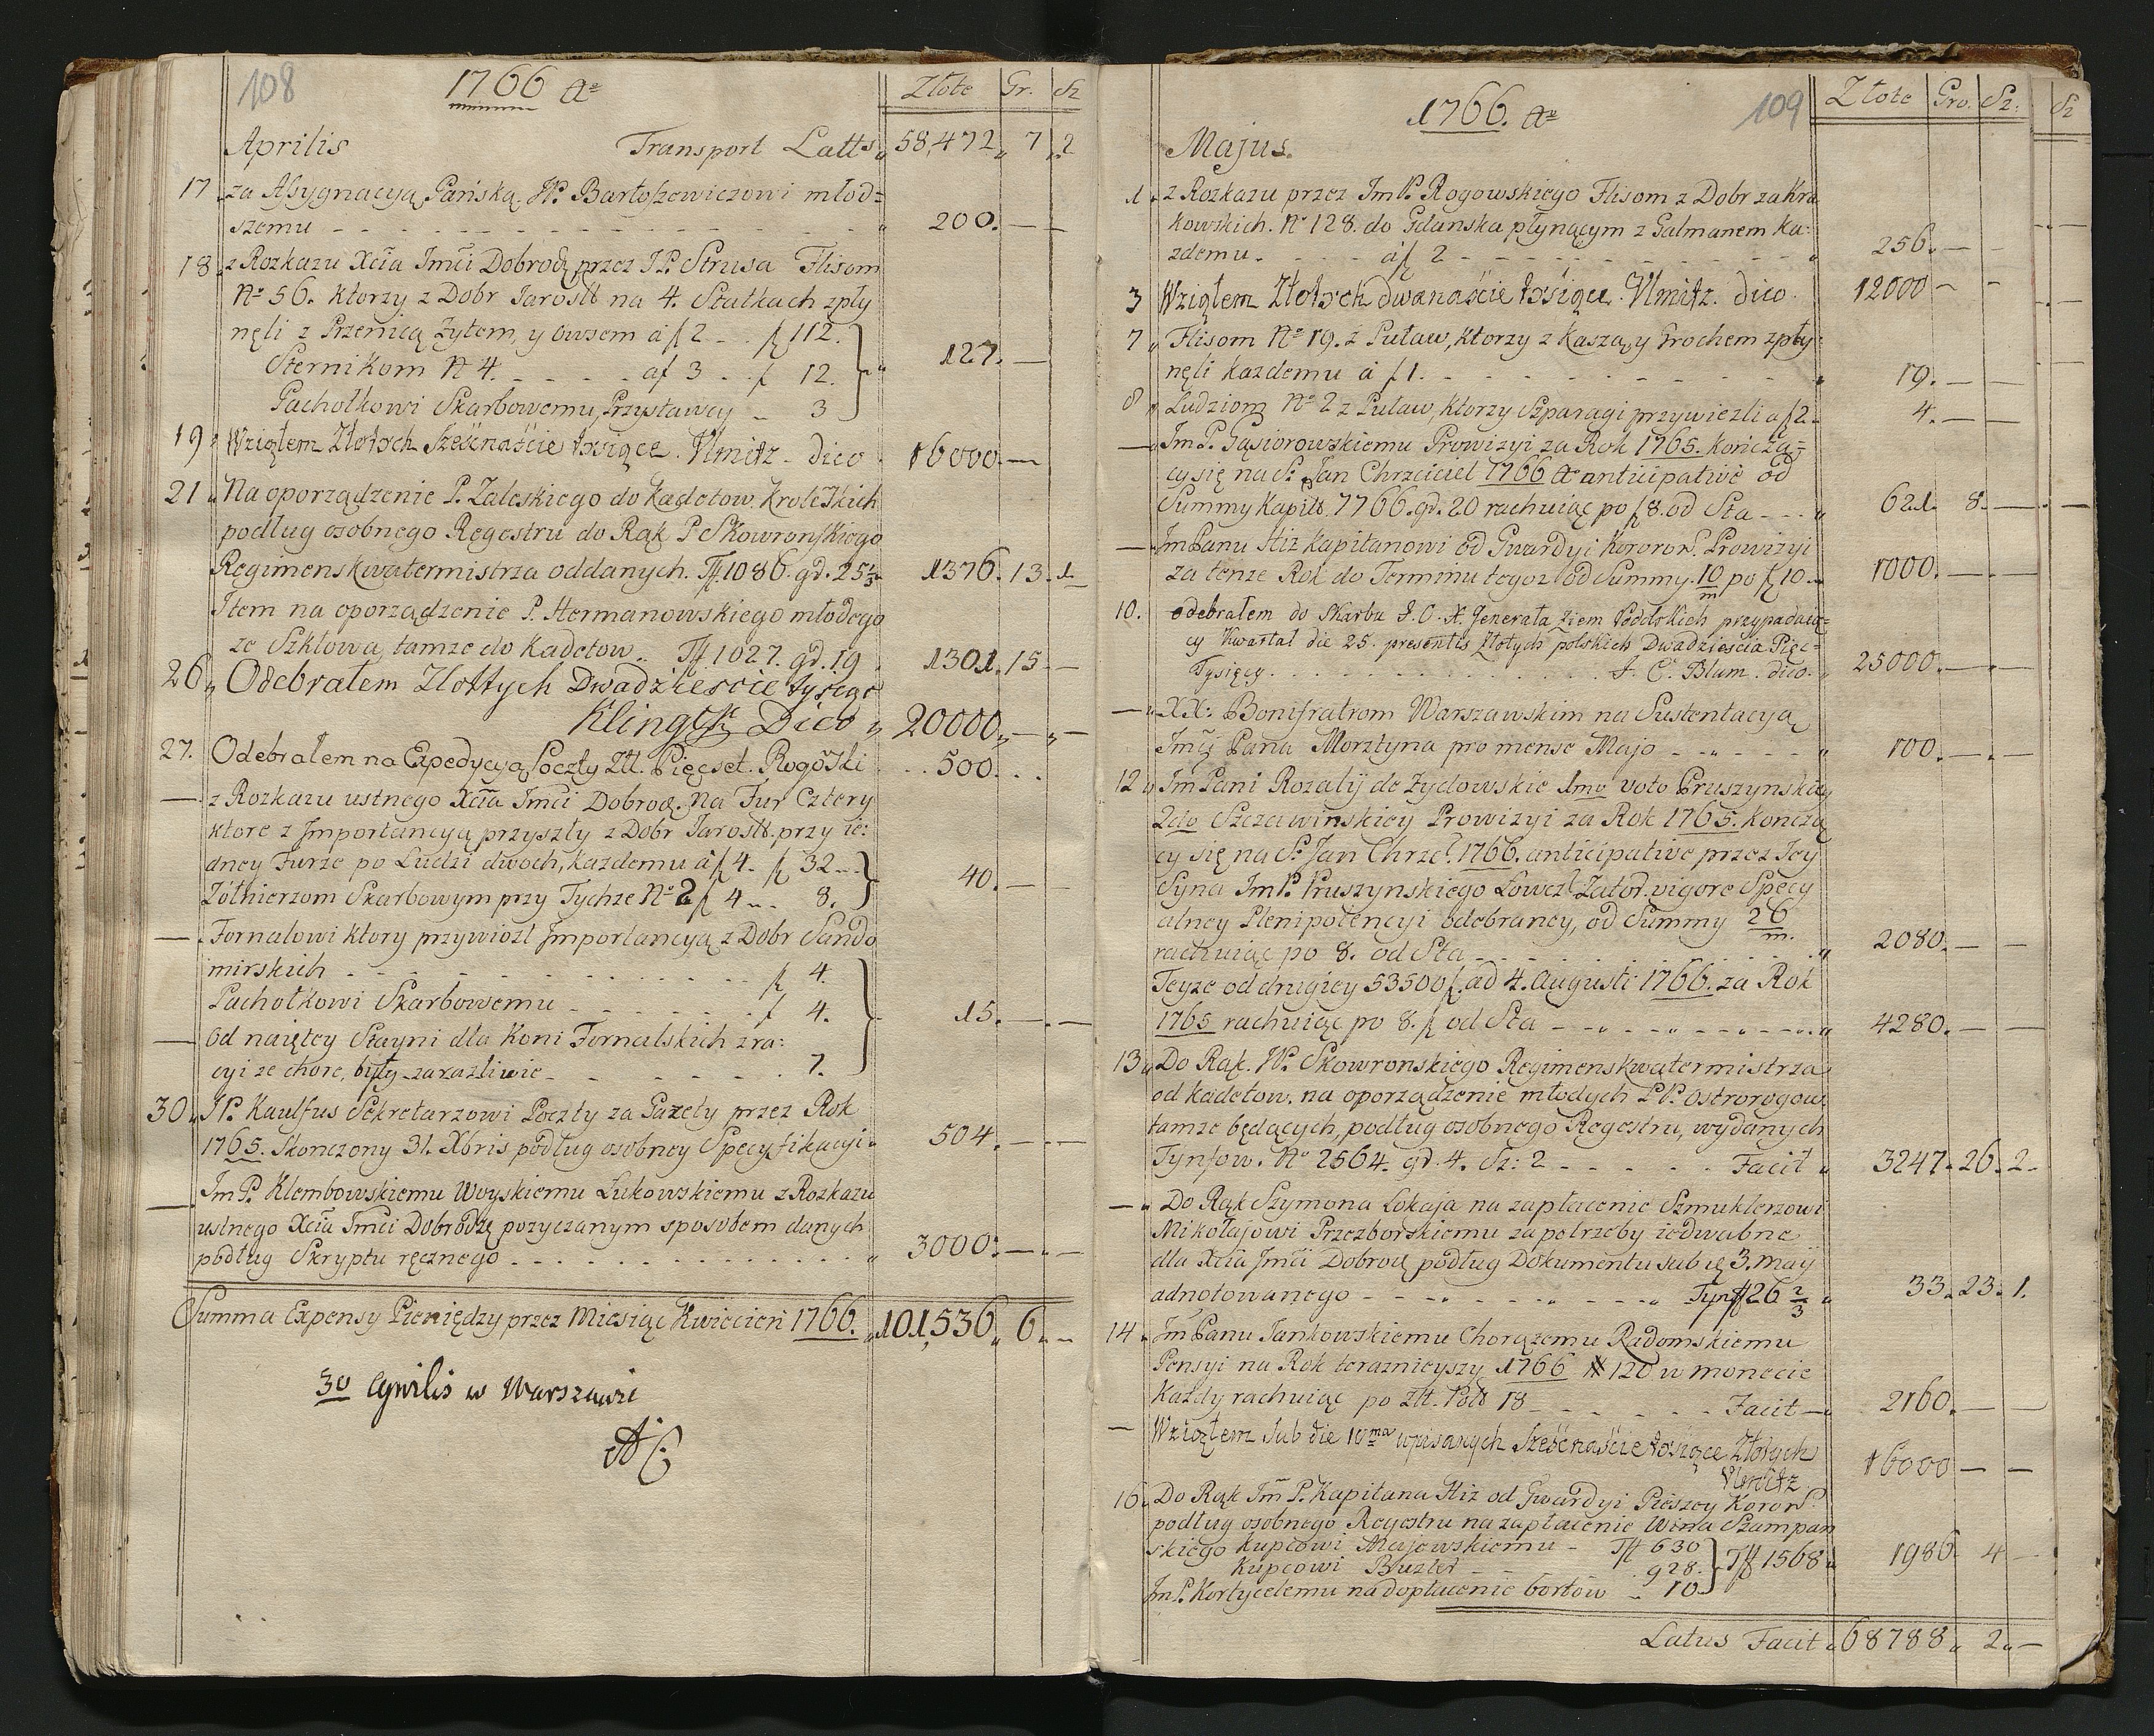 108
1766 Ao
Złote Gr. Sz
Aprilis Transport Latt s 58,472 7 2
17 za Assygnacyą Pańską JP. Bartoszewiczowi młod=
szemu 200. — —
18 z Rozkazu Xcia Imci Dobrodz przez JP. Strusa Flisom
No 56. ktorzy z Dobr Jarosłł na 4. Statkach zpły
neli z Przenicą Zytem, y owsem a f 2 f 112.
Sternikom N 4. af 3 f 12. 127. —
Pachołkowi Skarbowemu, Przystawcy 3
19 Wziąłem Złotych Sześćnaście tysięce. Ulmitz dico 16000 —
21 Na oporządzenie P. Zaleskiego do Kadetow Krolewskich
podług osobnego Regestru do Rąk P Skowronskiego
Regimenskwatermistrza oddanych. Tff. 1086. gd. 25 1/3 1376. 13. 1
Item na oporządzenie P. Hermanowskiego młodego
ze Szkłowa tamze do Kadetow Tff. 1027. gd. 19 1301. 15. —
26 Odebrałem Zlottych Dwadziescie tysięce
Dico 20000 — —
27. Odebrałem na Expedycyą Poczty Ztt. Pięcset. Rogoski 500.
— z Rozkazu ustnego Xcia Imci Dobrodz. Na Fur Cztery
ktore z Importancyą przyszły z Dobr Jarosłł. przy ie:
dney Furze po Ludzi dwoch, kazdemu a f 4. f 32
Zołnierzom Skarbowym przy Tychze No 2 f 4 8. 40. — —
— Fornalowi ktory przywiozł Importancyą z Dobr Sando
mirskich f 4.
Pachołkowi Skarbowemu f 4. 15. — —
— Od naiętey Stayni dla Koni Fornalskich zra:
cyi ze chore, były zarazliwie 7.
30 JP. Kaulfus Sekretarzowi Poczty za Gazety przez Rok
1765. Skonczony 31. Xbris podług osobney Specyfikacyi 504. — —
— Im P. Klembowskiemu Woyskiemu Łukowskiemu z Rozkazu
ustnego Xcia Imci Dobrodz pozyczanym sposobem danych
podług Skryptu ręcznego 3000: — —
Summa Expensy Pieniędzy przez Miesiąc Kwiecień 1766. 101,536 6 —
30 Aprilis w Warszawie
AC
1766. Ao 109
Złote Gro. Sz. Sz
Majus.
1 z Rozkazu przez Im P. Rogowskiego Flisom z Dobr za Kra
kowskich. No 128. do Gdanska płynącym z Galmanem Ka:
zdemu af 2 256. — —
3 Wziąłem Złotych dwanaście tysięce. Ulmitz. dico 12000 — —
7 Flisom No 19. z Puław, ktorzy z Kaszą, y Grochem zpły:
neli kazdemu a f 1. 19. — —
8 Ludziom No 2 z Puław, ktorzy Szparagi przywiezli a f 2 4. — —
— Im P. Gąsiorowskiemu Prowizyi za Rok 1765. konczą=
cy się na S. Jan Chrzciciel 1766 Ao anticipative od
Summy Kapitł. 7766. gd. 20 rachuiąc po f 8. od Sta 621. 8. —
— Im Panu Hiz Kapitanowi od Gwardyi Koronn. Prowizyi
za tenze Rok do Terminu tegoz od Summy. 10/m po f 10 1000. — —
10. odebrałem do skarbu J. O. X. Generała Ziem Podolskich przypadaią=
cy kwartał die 25. presentis złotych polskich Dwadziescia Pięc=
Tysięcy J. C. Blum. dico. 25000. — —
— XX: Bonifratrom Warszawskim na Sustentacyą
Imci Pana Morsztyna pro mense Majo 100. — —
12 Im Pani Rozalij de Zydowskie 1mo voto Pruszynskiey
2do Szczawinskiey Prowizyi za Rok 1765. konczą
cy się na S. Jan Chrzc. 1766. anticipative przez Jey
Syna Im P. Pruszynskiego Łowcz. Zator. vigore Specy
alney Plenipotencyi odebraney, od Summy 26/m.
rachuiąc po 8. od Sta 2080. — —
Teyze od drugiey 53500 f. ad 4. Augusti 1766. za Rok
1765 rachuiąc po 8. f od Sta 4280. — —
13 Do Rąk. JP. Skowronskiego Regimenskwatermistrza
od Kadetow. na oporządzenie młodych PP. Ostrorogow
tamze będących, podług osobnego Regestru, wydanych
Tynfow. No 2564. gd. 4. Sz: 2 Facit 3247. 26. 2
— Do Rąk Szymona Lokaja na zapłacenie Szmuklerzowi
Mikołajowi Przezborskiemu za potrzeby iedwabne
dla Xcia Imci Dobrodz podług Dokumentu sub 3. may
adnotowanego Tynff 26 2/3 33. 23. 1.
14 Im Panu Jankowskiemu Chorązemu Radomskiemu
Pensyi na Rok teraznieyszy 1766 # 120 w monecie
Kazdy rachuiąc po Ztt. Poll 18 Facit 2160. — —
— Wziąłem sub die 10ma wpisanych Sześćnaście tysięce Złotych
Ulmitz 16000 — —
16 Do Rąk Im P. Kapitana Hiz od Gwardyi Pieszey Koronn.
podług osobnego Reyestru na zapłacenie Wina Szampan
skiego Kupcowi Majowskiemu Tff 630
Kupcowi Buzler 928. Tff 1568 1986 4 —
Im P. Kortycelemu na dopłacenie bortow 10
Latus Facit 68788 2 —